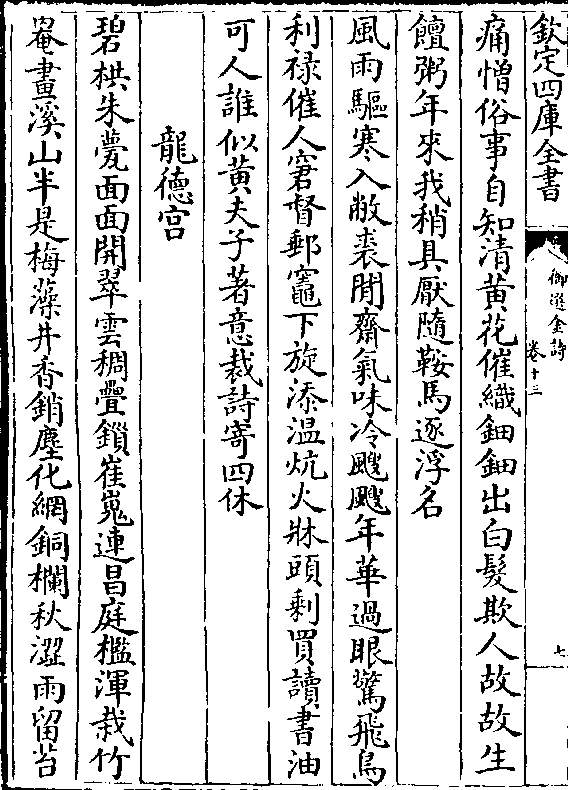 欽定四庫全書
御選金詩
卷十三
七
痛憎俗事自知清黄花催織鈿鈿出白髮欺人故故生
饘粥年來我稍具厭隨鞍馬逐浮名
風雨驅寒入敝裘閒齋氣味冷颼颼年華過眼驚飛鳥
利禄催人窘督郵竈下旋添温炕火牀頭剩買讀書油
可人誰似黄夫子著意裁詩寄四休
龍德宫
碧栱朱甍面面開翠雲稠疊鎖崔嵬連昌庭檻渾栽竹
罨畫溪山半是梅藻井香銷塵化網銅欄秋澀雨留苔